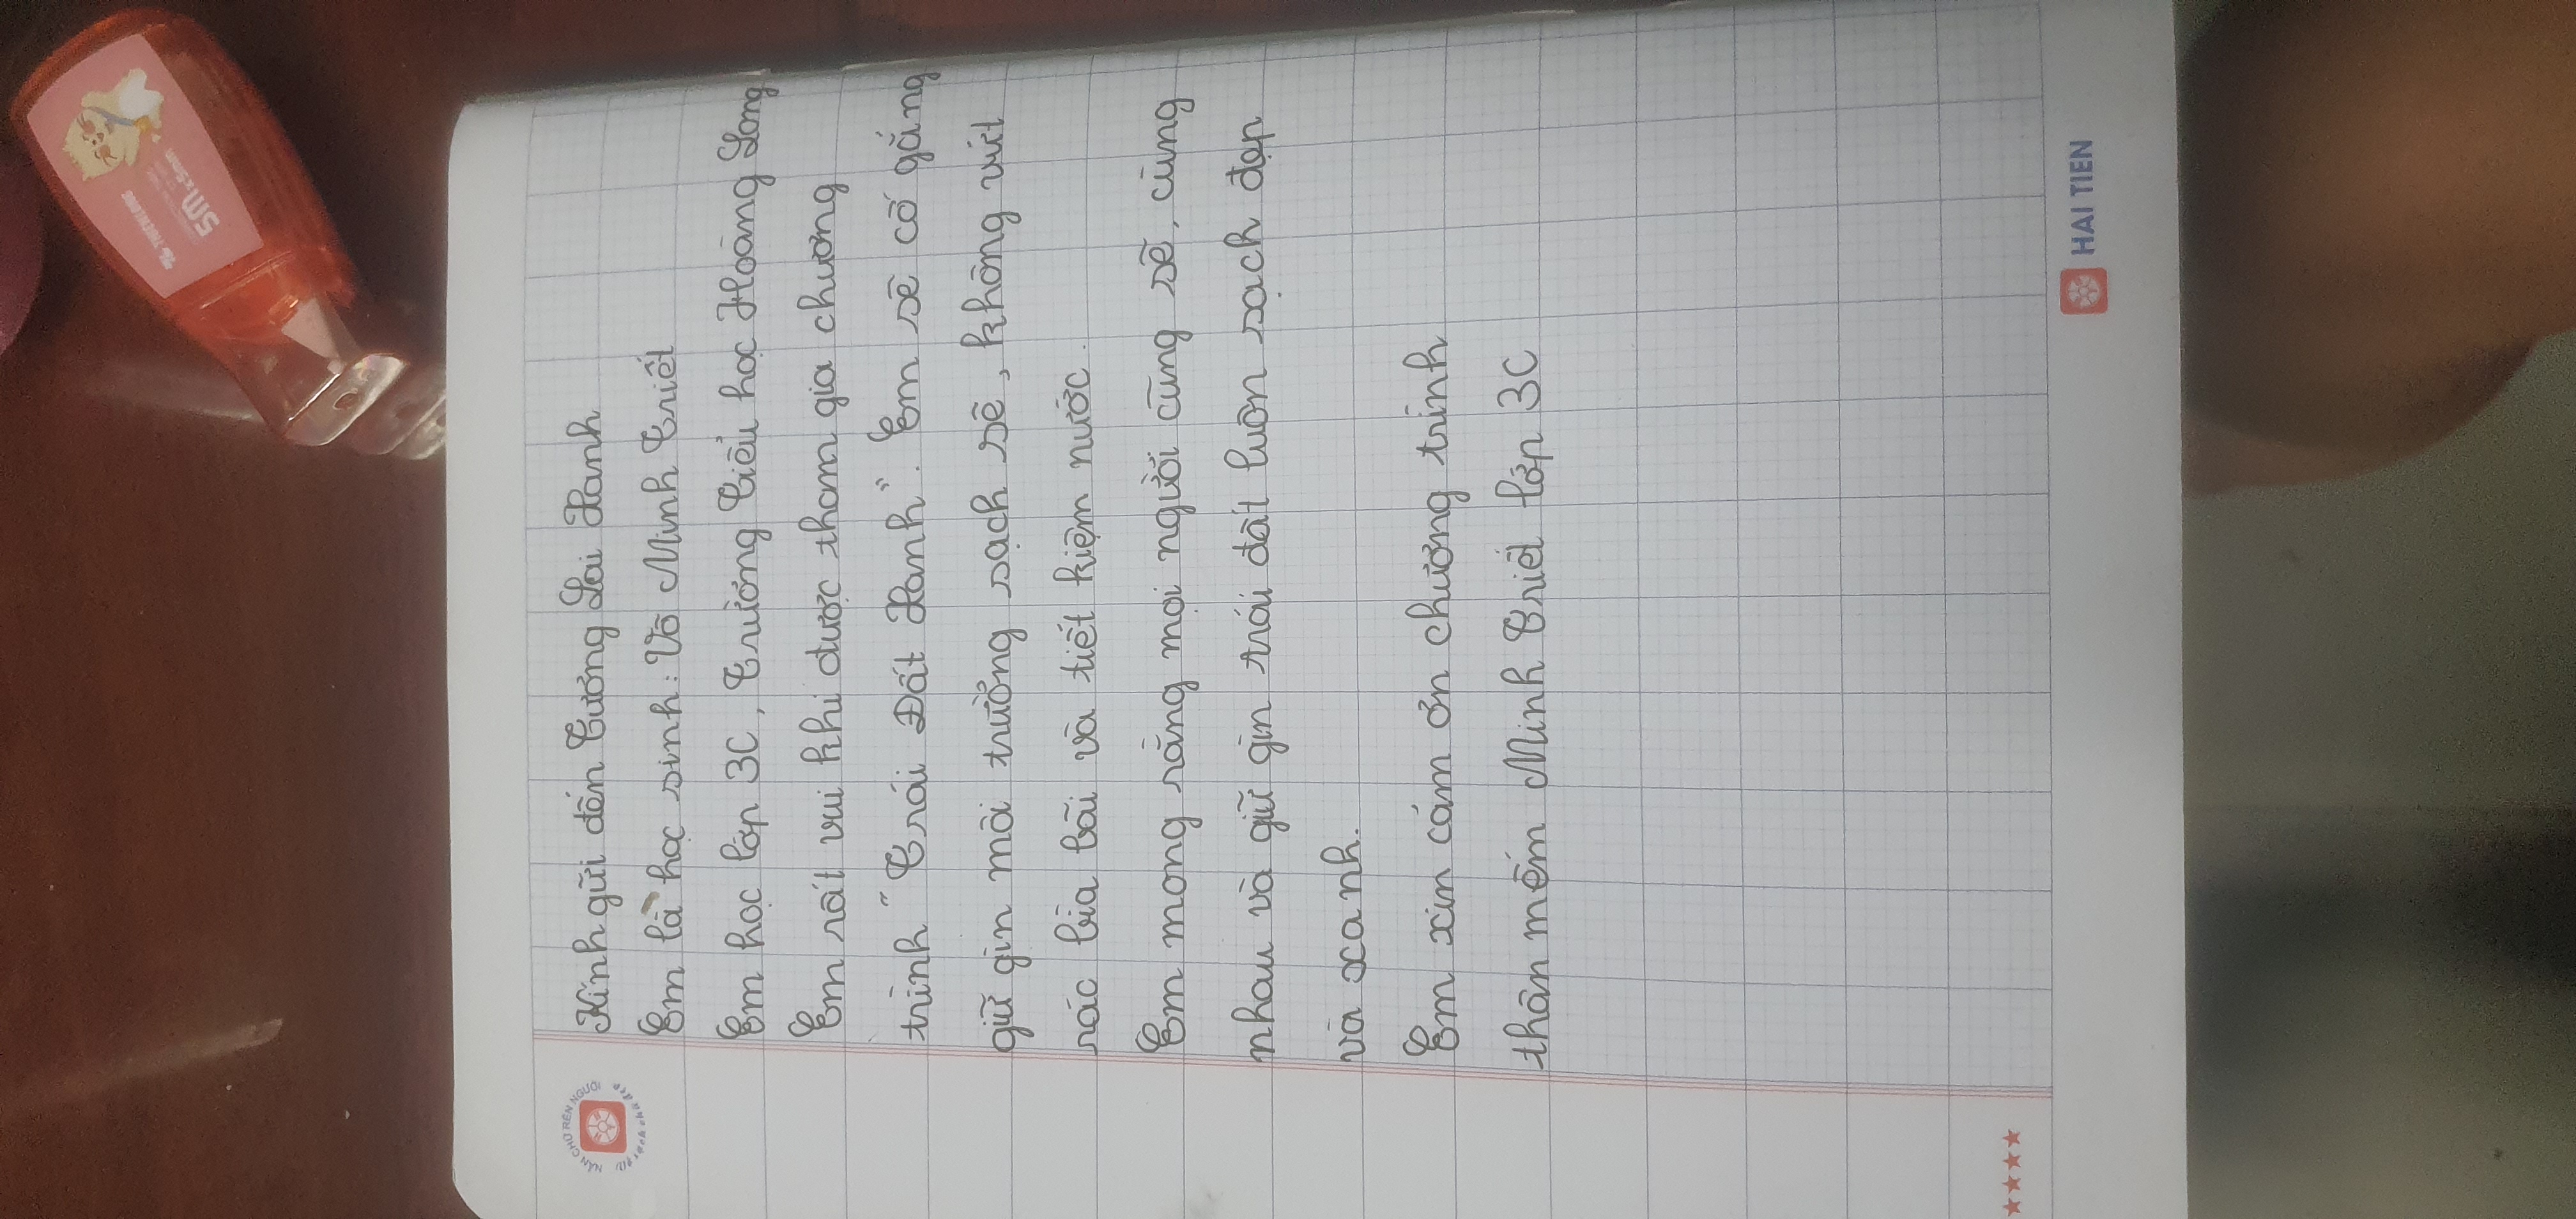 Kính gửi đến Tương Lai Xanh
Em là học sinh: Võ Minh Triết
Em học lớp 3C, Trường Tiểu học Hoàng Long
Em rất vui khi được tham gia chương
trình "Trái Đất Xanh". Em sẽ cố gắng
giữ gìn môi trường sạch sẽ, không vứt
rác bừa bãi và tiết kiệm nước.
Em mong rằng mọi người cũng sẽ, cùng
nhau và giữ gìn trái đất luôn sạch đẹp
và xanh.
Em xin cám ơn chương trình
thân mến Minh Triết lớp 3C
HẢI TIẾN
NẮN CHỮ RÈN NGƯỜI
5M